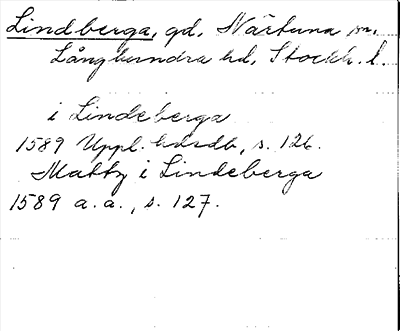 Lindberga, gd, Närtuna sn,
Långhundra hd, Stockh. l.
i Lindeberga
1589 Uppl. hdrdb, s. 126.
Matts i Lindeberga
1589 a. a., s. 127.